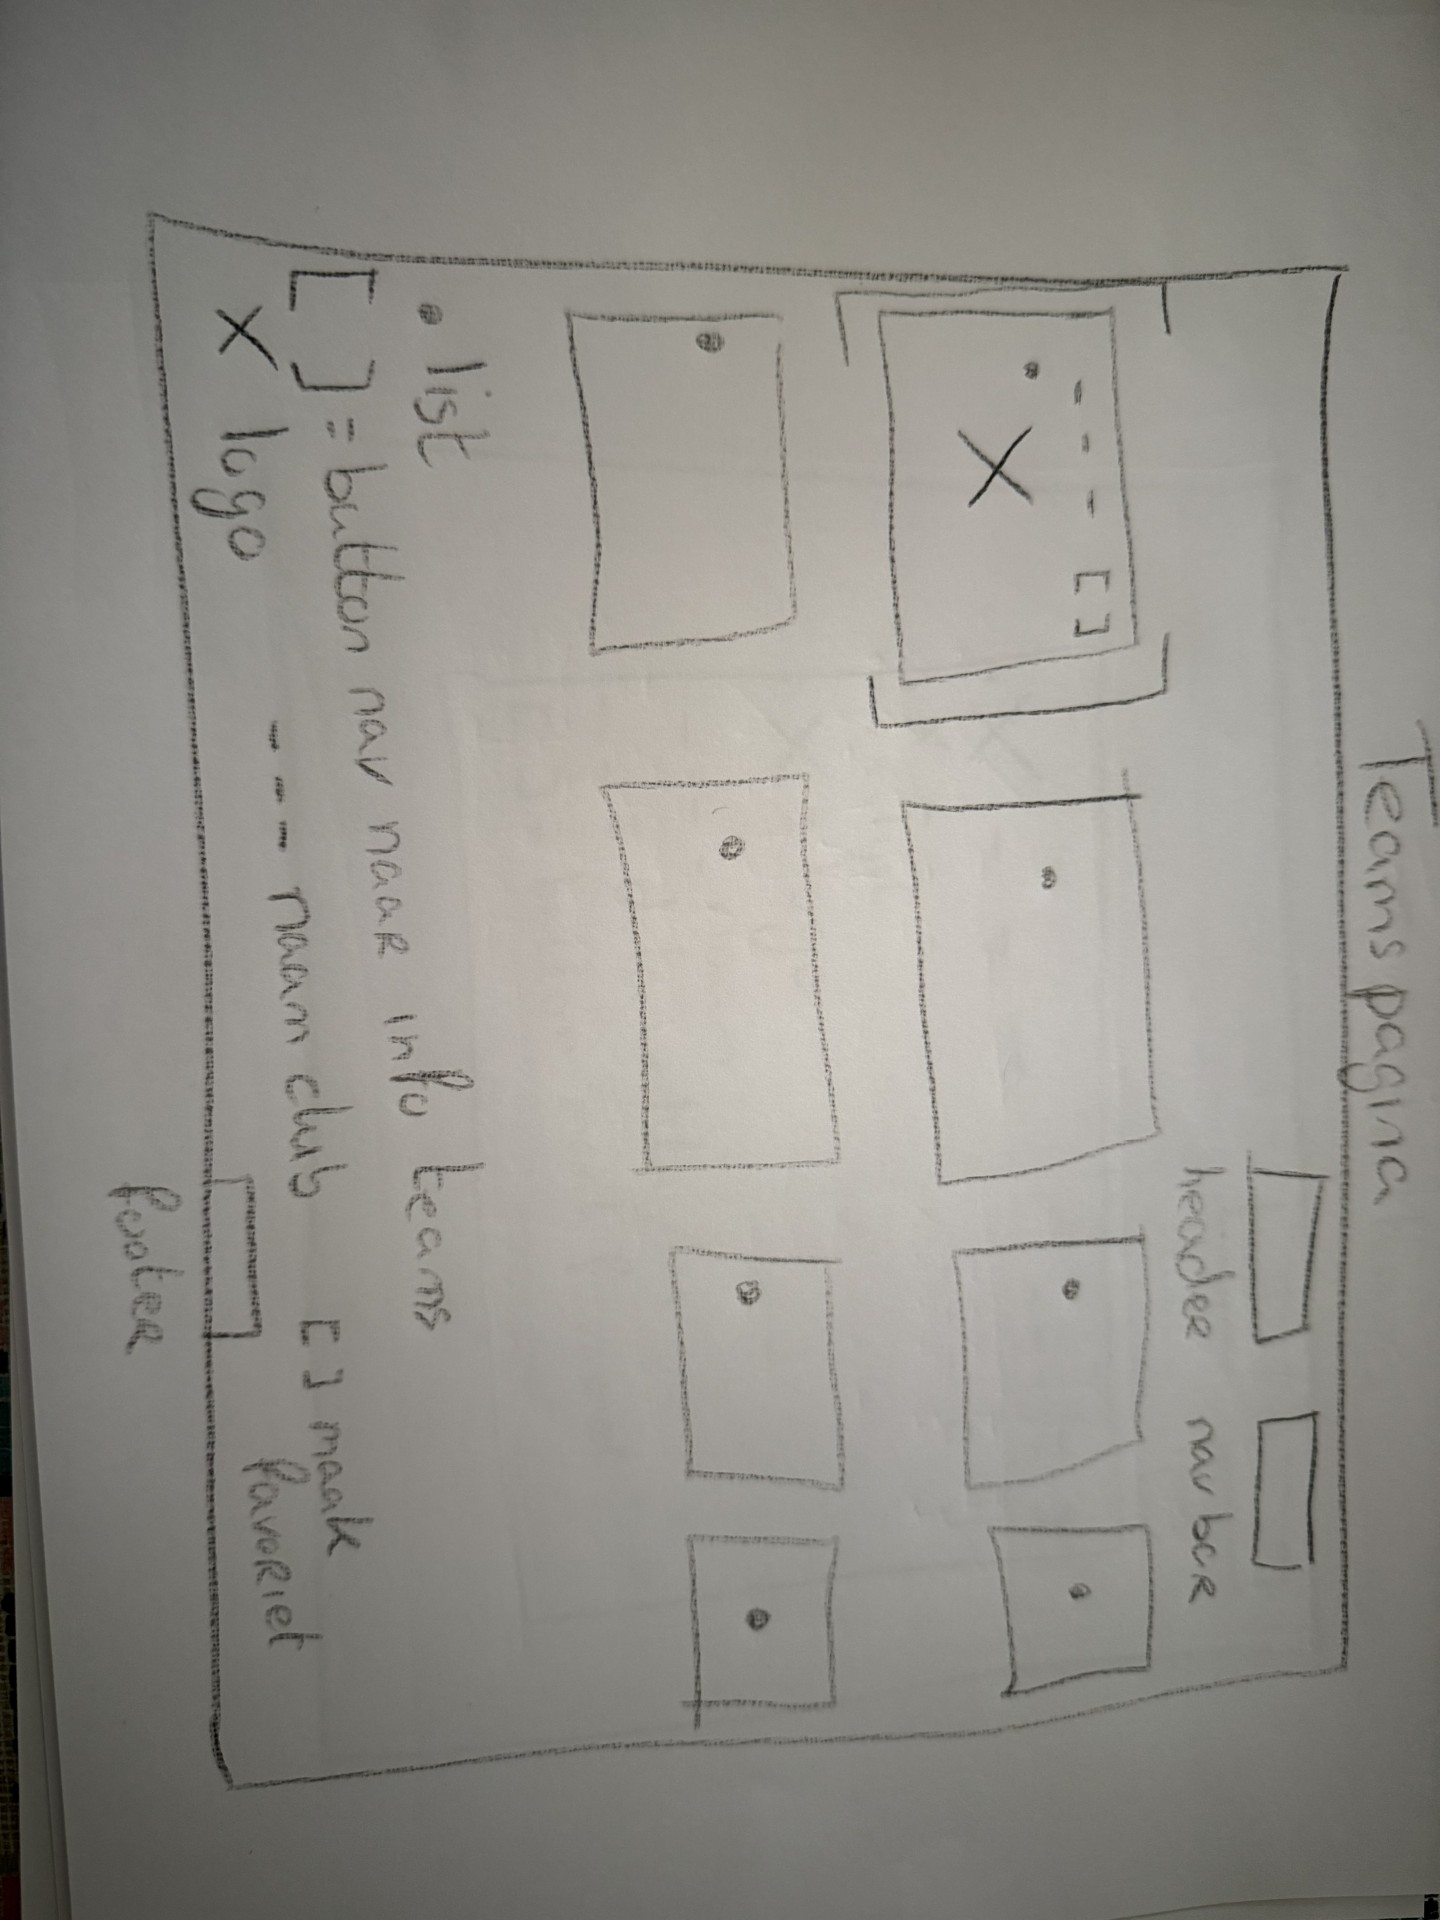 Teams pagina
header nav bar
- - - [ ]
X
• list
[ ] = button nav naar info teams
X logo
- - - naam club
[ ] maak
favoriet
footer